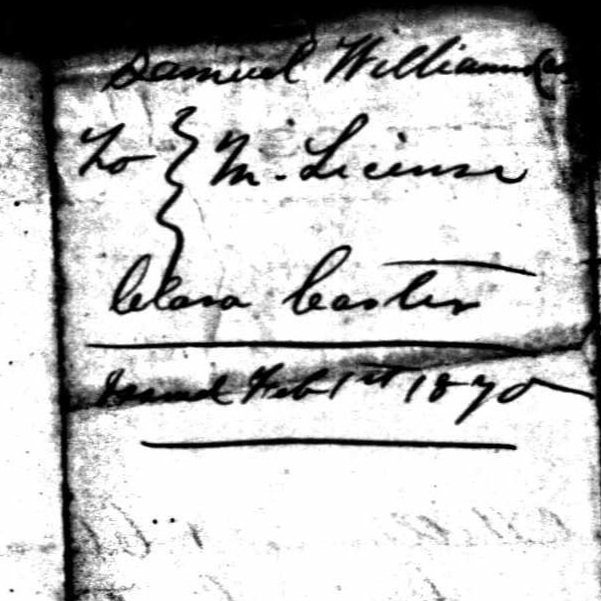 Samuel Williams (Col
To } M. License
Clara Carter
Issued Feb 1st 1870